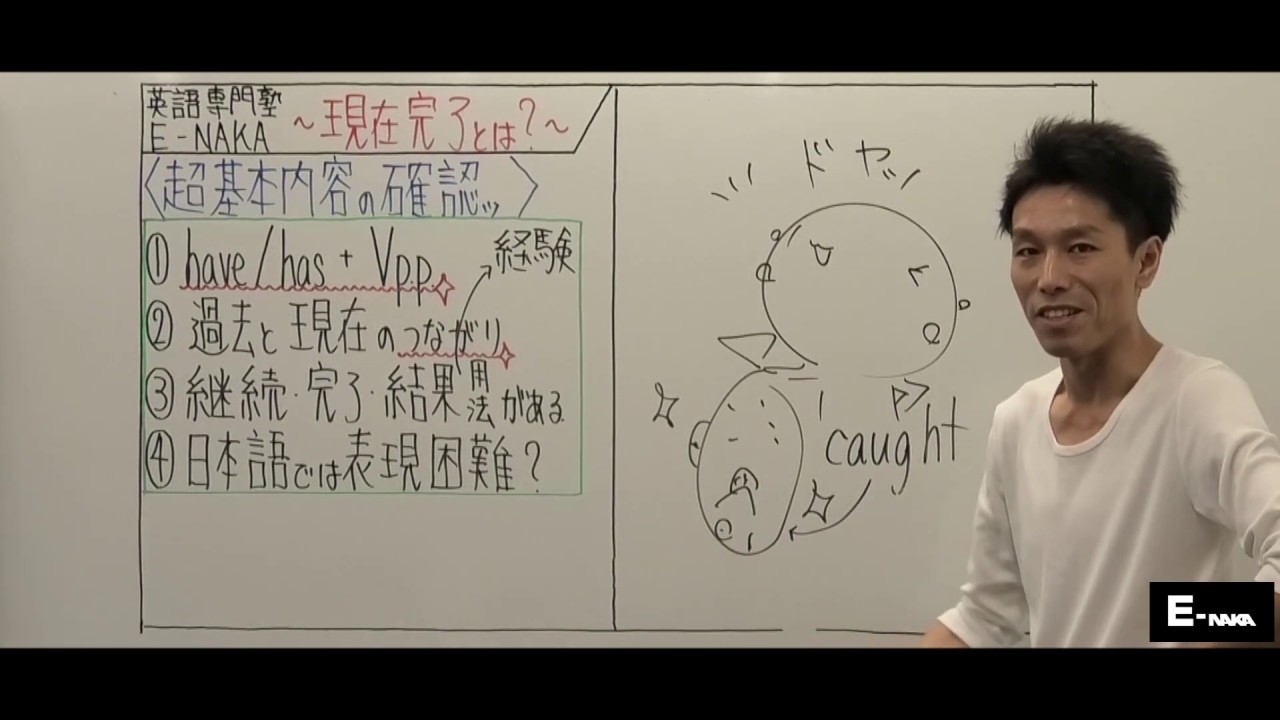 英語専門塾
E-NAKA
～現在完了とは?～
〈超基本内容の確認ッ〉
① have/has + Vpp
経験
② 過去と現在のつながり
③ 継続・完了・結果用法がある
④ 日本語では表現困難?
ドヤッ
caught
E-NAKA